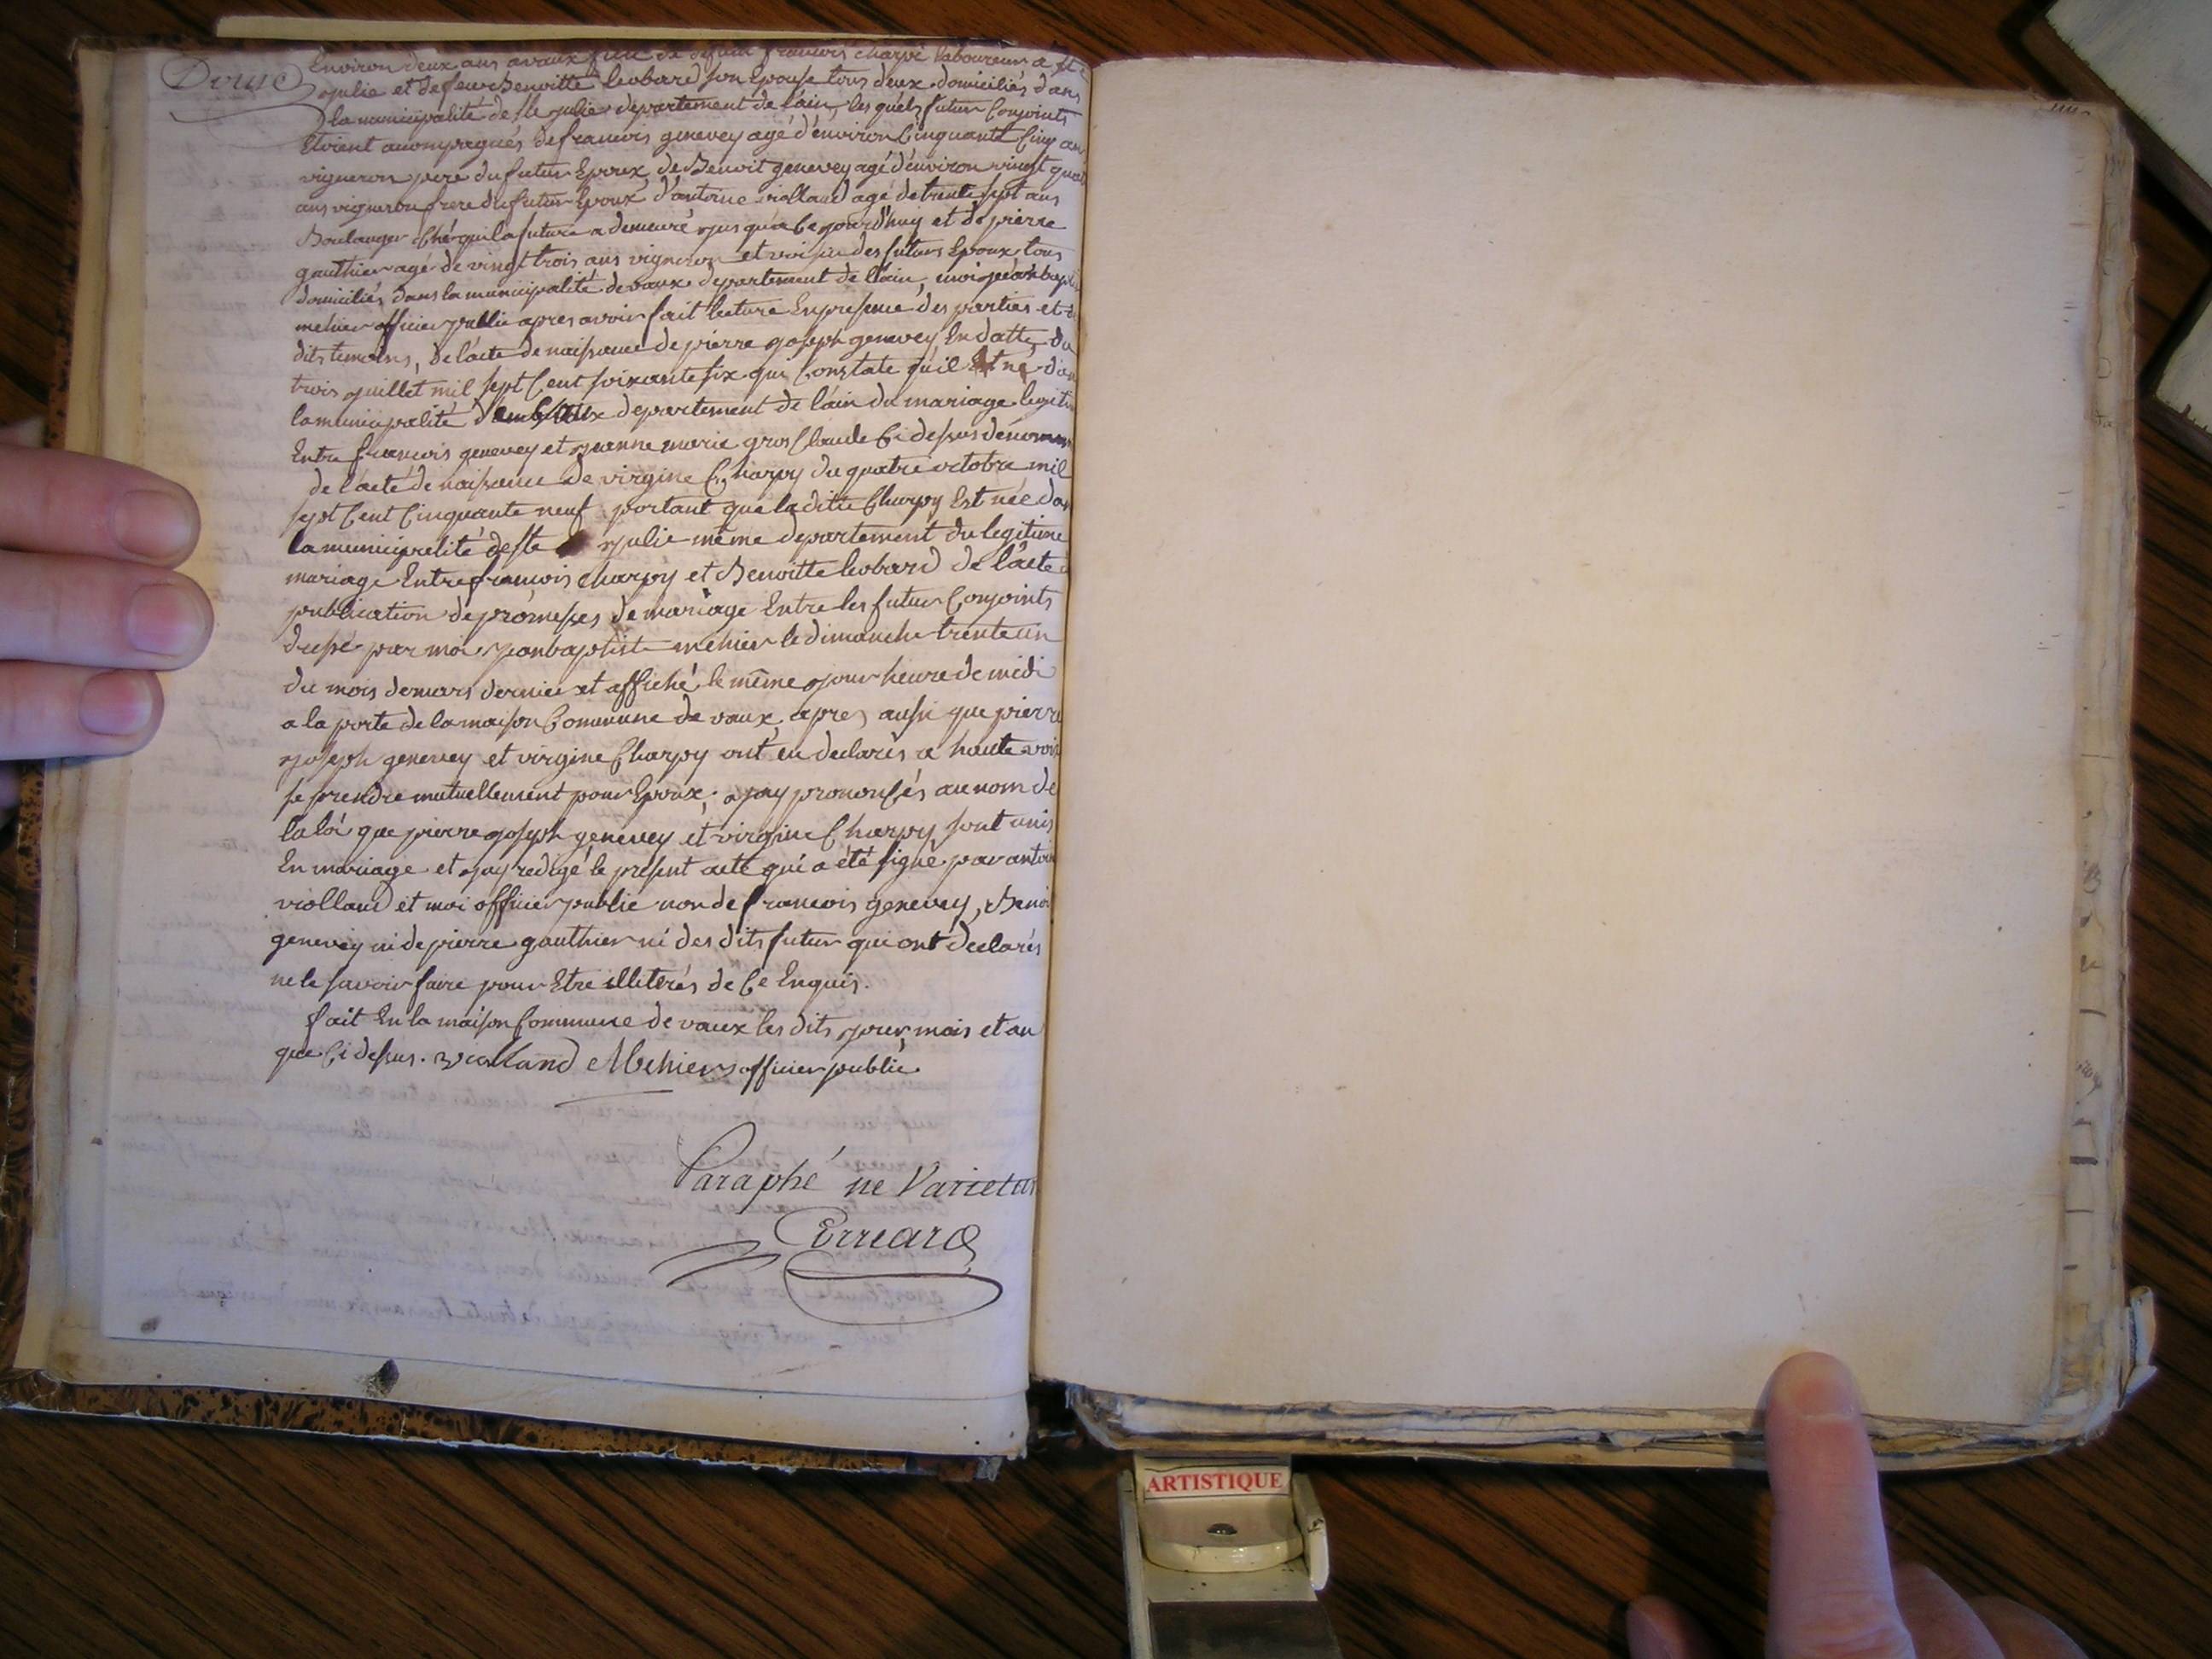 Douze
Environ deux ans a vaux fille de défunt francois charpi laboureur a ste
julie et de feue Benoitte leobard son Epouse tous deux domiciliés dans
la municipalité de ste julie departement de l'ain, les quels futur Conjoints
Etoient acompagnés de francois genevey agé d'environ Cinquante Cinq ans
vigneron pere du futur Epoux, de Benoit genevey agé d'environ vingt quat
ans vigneron frere du futur Epoux, d'antoine violland agé de trente sept ans
Boulanger Ché qui la future a demeuré jus qu'a Ce jourd'huy et de pierre
gauthier agé de vingt trois ans vigneron et voisin des futurs Epoux tous
domiciliés dans la municipalité de vaux departement de l'ain, moi jean bap
mehier officier public apres avoir fait lecture En presence des parties et d
dits temoins, de l'acte de naissance de pierre joseph genevey En datte du
trois juillet mil sept Cent soixante six qui Constate qu'il Est né dan
la municipalité departement de l'ain du mariage legiti
Entre francois genevey et jeanne marie gros Claude Ci dessus dénomm
de l'acte de naissance de virgine Charpy du quatre octobre mil
sept Cent Cinquante neuf portant que la ditte Charpy Est née dan
la municipalité de ste julie même departement du legitime
mariage Entre francois charpy et Benoitte leobard de l'acte d
publication de promesses de mariage Entre les futur Conjoints
dressé par moi jean baptiste mehier le dimanche trente un
du mois de mars dernier et affiché le même jour heure de midi
a la porte de la maison Commune de vaux, apres aussi que pierre
joseph genevey et virgine Charpy ont eu declarés a haute voix
se prendre mutuellement pour Epoux, j'ay prononcés au nom de
la loi que pierre joseph genevey et virgine Charpy sont unis
En mariage et j'ay redigé le présent acte qui a été signé par antoin
violland et moi officier public non de francois genevey, Benoi
genevey ni de pierre gauthier ni des dits futur qui ont declarés
ne le savoir faire pour Etre illiterés de Ce Enquis.
fait En la maison Commune de vaux les dits jour, mois et an
que Ci dessus. violland Mehier officier public
Paraphé ne Varietur
ARTISTIQUE